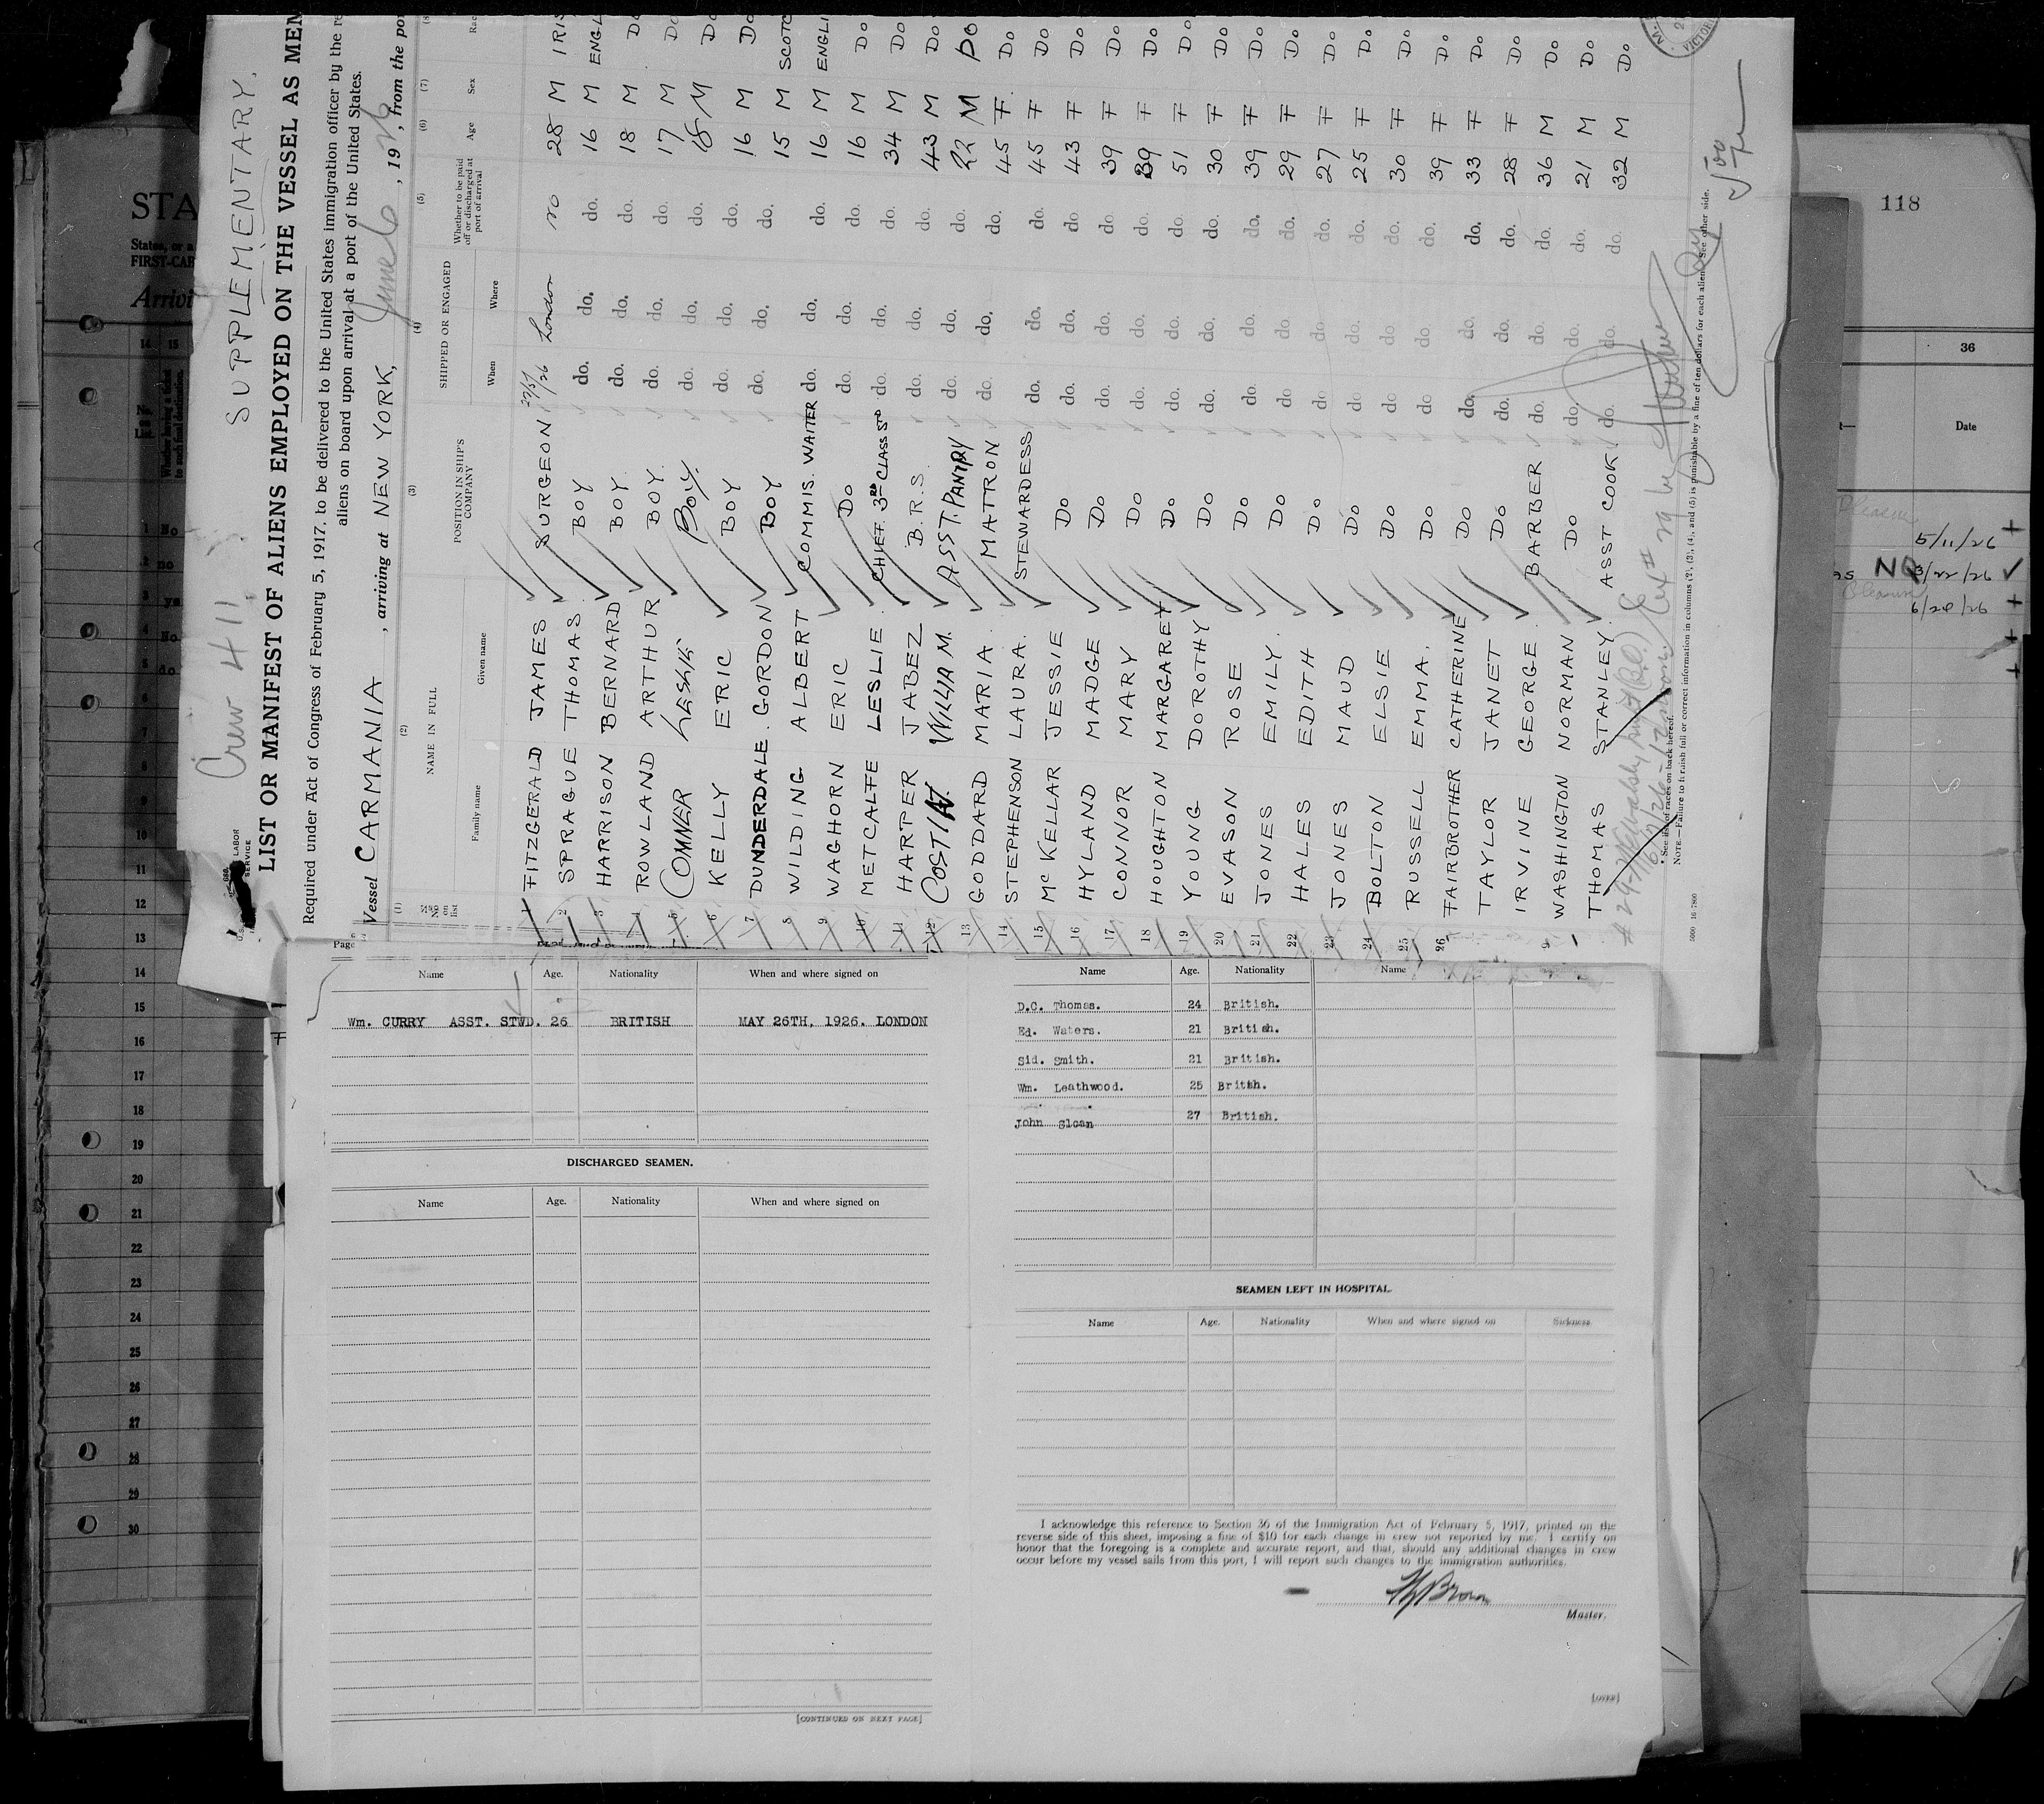 SUPPLEMENTARY.
Crew 411.
LIST OR MANIFEST OF ALIENS EMPLOYED ON THE VESSEL AS MEM
Required under Act of Congress of February 5, 1917, to be delivered to the United States immigration officer by the re
aliens on board upon arrival at a port of the United States.
Vessel CARMANIA, arriving at NEW YORK, June 6, 1926, from the por
(1) (2) (3) (4) (5) (6) (7) (8
No. on list NAME IN FULL POSITION IN SHIP'S COMPANY SHIPPED OR ENGAGED Whether to be paid off or discharged at port of arrival Age Sex Rac
Family name Given name When Where
1 FITZGERALD JAMES SURGEON 22/5/26 London no 28 M IRIS
2 SPRAGUE THOMAS BOY do. do. do. 16 M ENGL
3 HARRISON BERNARD BOY do. do. do. 18 M Do
4 ROWLAND ARTHUR BOY. do. do. do. 17 M Do
5 CONNER LESLIE BOY. do. do. do. 18 M Do
6 KELLY ERIC BOY do. do. do. 16 M Do
7 DUNDERDALE. GORDON BOY do. do. do. 15 M SCOTC
8 WILDING ALBERT COMMIS. WAITER do. do. do. 16 M ENGLI
9 WAGHORN ERIC Do do. do. do. 16 M Do
10 METCALFE LESLIE. CHIEF 3RD CLASS STD do. do. do. 34 M Do
11 HARPER JABEZ B.R.S. do. do. do. 43 M Do
12 COSTIN. WILLIAM M. ASST. PANTRY do. do. do. 22 M Do
13 GODDARD MARIA. MATRON do. do. do. 45 F. Do
14 STEPHENSON LAURA. STEWARDESS do. do. do. 45 F Do
15 McKELLAR JESSIE Do do. do. do 43 F Do
16 HYLAND MADGE Do do. do. do. 39 F Do
17 CONNOR MARY Do do. do. do. 39 F Do
18 HOUGHTON MARGARET Do do. do. do. 51 F Do
19 YOUNG DOROTHY Do do. do. do. 30 F Do
20 EVASON ROSE Do do. do. do. 39 F Do
21 JONES EMILY. Do do do do. 29 F Do
22 HALES EDITH Do do do do. 27 F Do
23 JONES MAUD Do do do. do. 25 F Do
24 BOLTON ELSIE Do do do do. 30 F Do
25 RUSSELL EMMA. Do do do. do. 39 F Do
26 FAIRBROTHER CATHERINE Do do. do. do. 33 F Do
TAYLOR JANET Do do. do. do. 28 F Do
IRVINE GEORGE. BARBER do. do. do. 36 M Do
WASHINGTON NORMAN Do do. do. do. 21 M Do
THOMAS STANLEY. ASST COOK. do. do. do. 32 M Do
* See list of races on back hereof.
NOTE.—Failure to furnish full or correct information in columns (2), (3), (4), and (5) is punishable by a fine of ten dollars for each alien. See other side.
Page
Name Age. Nationality When and where signed on
Wm. CURRY ASST. STWD. 26 BRITISH MAY 26TH, 1926. LONDON
DISCHARGED SEAMEN.
Name Age. Nationality When and where signed on
[CONTINUED ON NEXT PAGE]
Name Age. Nationality Name
D.C. Thomas. 24 British.
Ed. Waters. 21 British.
Sid. Smith. 21 British.
Wm. Leathwood. 25 Britsh.
John Sloan 27 British.
SEAMEN LEFT IN HOSPITAL.
Name Age. Nationality When and where signed on Sickness
I acknowledge this reference to Section 36 of the Immigration Act of February 5, 1917, printed on the
reverse side of this sheet, imposing a fine of $10 for each change in crew not reported by me. I certify on
honor that the foregoing is a complete and accurate report, and that, should any additional changes in crew
occur before my vessel sails from this port, I will report such changes to the immigration authorities.
Brown
Master.
[OVER]
STA
States, or a
FIRST-CAB
Arrivi
14 15
1 No
2 no
3 ye
4 No
5 do
6
7
8
9
10
11
12
13
14
15
16
17
18
19
20
21
22
23
24
25
26
27
28
29
30
118
36
Date
Pleasure
5/11/26
NQ 3/22/26
6/20/26